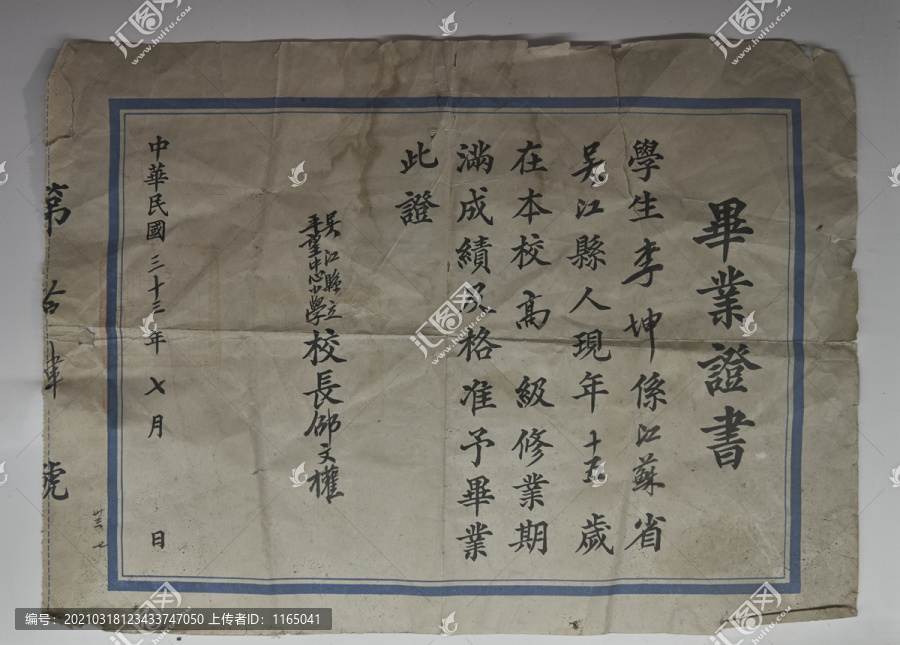 畢業證書
學生李坤係江蘇省
吳江縣人現年十五歲
在本校高級修業期
滿成績及格准予畢業
此證
吳江縣立
平望中心小學
校長邵文權
中華民國三十三年七月 日
第 號
卅三 七
汇图网
www.huitu.com
编号：20210318123433747050 上传者ID：1165041